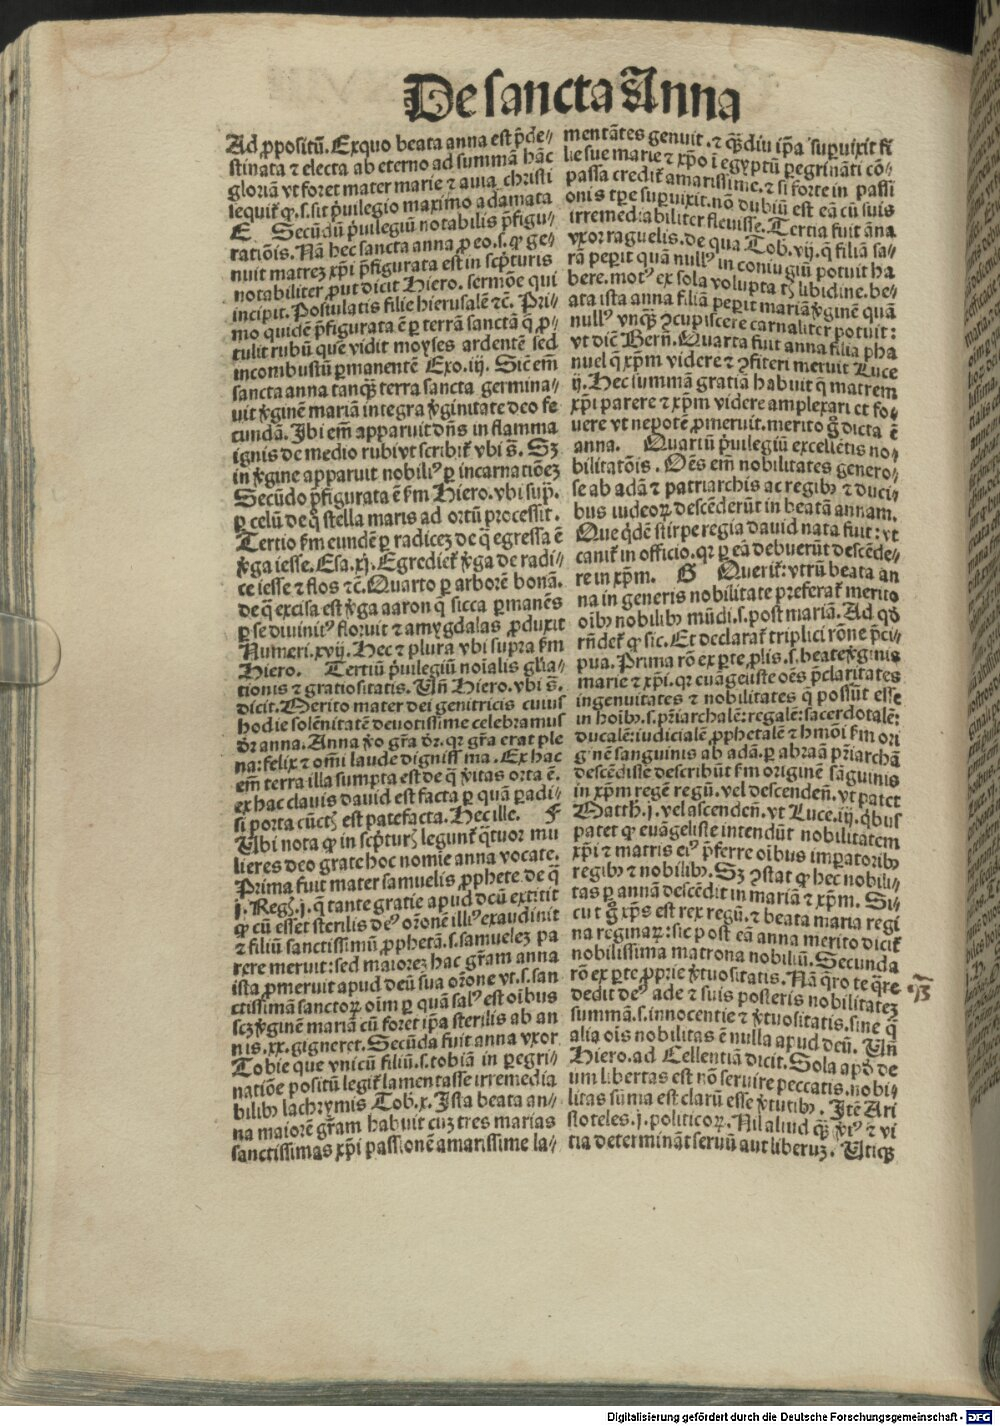 De sancta Anna
Ad ꝓpositū. Exquo beata anna est p̄de⸗
stinata ⁊ electa ab eterno ad summā hāc
gloriā vt foret mater marie ⁊ auia christi
sequit̄ ꝙ .s. sit p̄uilegio maximo adamata
E Secūdū p̄uilegiū notabilis p̄figu⸗
ratiōis. Nā hec sancta anna ꝓ eo .s. ꝙ ge⸗
nuit matrez xp̄i p̄figurata est in scp̄turis
notabiliter ꝓut dicit Hiero. sermōe qui
incipit. Postulatis filie hierusalē ⁊c̄. Pri⸗
mo quidē p̄figurata ē ꝑ terrā sanctā q̄ ꝓ⸗
tulit rubū quē vidit moyses ardentē sed
incombustū ꝑmanentē Exo. iij. Sic em̄
sancta anna tanqꝫ terra sancta germina⸗
uit v̄ginē mariā integra v̄ginitate deo fe
cundā. Ibi em̄ apparuit dn̄s in flamma
ignis de medio rubi vt scribit̄ vbi s̄. Sꝫ
in v̄gine apparuit nobiliꝰ ꝑ incarnationēz
Secūdo p̄figurata ē fm̄ Hiero. vbi sup̄.
ꝑ celū de q̄ stella maris ad ortū processit.
Tertio fm̄ eundē ꝑ radicez de q̄ egressa ē
v̄ga iesse. Esa. xj. Egrediet̄ v̄ga de radi⸗
ce iesse ⁊ flos ⁊c̄. Quarto ꝑ arborē bonā.
de q̄ excisa est v̄ga aaron q̄ sicca ꝑmanēs
ꝑ se diuinitꝰ floruit ⁊ amygdalas ꝓduxit
Numeri. xvij. Hec ⁊ plura vbi supra fm̄
Hiero. Tertiū p̄uilegiū noīalis gl̄ia⸗
tionis ⁊ gratiositatis. Vn̄ Hiero. vbi s̄.
dicit. Merito mater dei genitricis cuius
hodie solēnitatē deuotissime celebramus
dr̄ anna. Anna v̄o gr̄a dr̄. qr gr̄a erat ple
na: felix ⁊ om̄i laude digniss ma. Ex hac
em̄ terra illa sumpta est de q̄ v̄itas orta ē.
ex hac clauis dauid est facta ꝑ quā ꝑadi⸗
si porta cūctꝭ est patefacta. Hec ille. F
Vbi nota ꝙ in scp̄turꝭ legunt̄ q̄tuor mu
lieres deo grate hoc nomīe anna vocate.
Prima fuit mater samuelis ꝓphete de q̄
j. Regꝭ. j. q̄ tante gratie apud deū extitit
ꝙ cū esset sterilis deꝰ orōnē illiꝰ exaudiuit
⁊ filiū sanctissimū ꝓphetā .s. samuelez pa
rere meruit: sed maiorez hac gr̄am anna
ista ꝓmeruit apud deū sua orōne vt .s. san
ctissimā sanctoꝝ oīm ꝑ quā salꝰ est oībus
scꝫ v̄ginē mariā cū foret ip̄a sterilis ab an
nis. xx. gigneret. Secūda fuit anna vxor
Tobie que vnicū filiū .s. tobiā in ꝑegri⸗
natiōe positū legit̄ lamentasse irremedia
bilibꝫ lachrymis Tob. x. Ista beata an⸗
na maiorē gr̄am habuit cuꝫ tres marias
sanctissimas xp̄i passionē amarissime la⸗
mentātes genuit. ⁊ qꝫdiu ip̄a suꝑuixit fi
lie sue marie ⁊ xp̄o ī egyptū ꝑegrināti cō⸗
passa credit̄ amarissime. ⁊ si forte in passi
onis tp̄e suꝑuixit. nō dubiū est eā cū suis
irremediabiliter fleuisse. Tertia fuit āna
vxor raguelis. de qua Tob. vij. q̄ filiā sa⸗
rā peꝑit quā nullꝰ in coniugiū potuit ha
bere. motꝰ ex sola volupta tꝭ libidine. be⸗
ata ista anna filiā peꝑit mariā v̄ginē quā
nullꝰ vnqꝫ ꝯcupiscere carnaliter potuit:
vt dic̄ Bern̄. Quarta fuit anna filia pha
nuel q̄ xp̄m videre ⁊ ꝯfiteri meruit Luce
ij. Hec summā gratiā habuit q̄ matrem
xp̄i parere ⁊ xp̄m videre amplexari et fo⸗
uere vt nepotē ꝓmeruit. merito g̊ dicta ē
anna. Quartū p̄uilegiū excellētis no⸗
bilitatōis. Oēs em̄ nobilitates genero⸗
se ab adā ⁊ patriarchis ac regibꝫ ⁊ duci⸗
bus iudeoꝝ descēderūt in beatā annam.
Que q̇dē stirpe regia dauid nata fuit: vt
canit̄ in officio. qr ꝑ eā debuerūt descēde⸗
re in xp̄m. G Querit̄: vtrū beata an
na in generis nobilitate preferat̄ merito
oībꝫ nobilibꝫ mūdi .s. post mariā. Ad qd̄
rn̄det̄ ꝙ sic. Et declarat̄ triplici rōne p̄ci⸗
pua. Prima rō ex ꝑte ꝓlis .s. beate v̄ginis
marie ⁊ xp̄i. qr euāgeliste oēs p̄claritates
ingenuitates ⁊ nobilitates q̄ possūt esse
in hoībꝫ .s. pr̄iarchalē: regalē: sacerdotalē:
ducalē: iudicialē ꝓphetalē ⁊ hmōi fm̄ ori
g nē sanguinis ab adā. ꝑ abraā pr̄iarchā
descēdisse describūt fm̄ originē sāguinis
in xp̄m regē regū. vel descenden̄. vt patet
Matth. j. vel ascenden̄. vt Luce. iij. q̇bus
patet ꝙ euāgeliste intendūt nobilitatem
xp̄i ⁊ matris eiꝰ p̄ferre oībus imꝑatoribꝫ
regibꝫ ⁊ nobilibꝫ. Sꝫ ꝯstat ꝙ hec nobili⸗
tas ꝑ annā descēdit in mariā ⁊ xp̄m. Si⸗
cut g̊ xp̄s est rex regū. ⁊ beata maria regi
na reginaꝝ: sic post eā anna merito dicit̄
nobilissima matrona nobiliū. Secunda
rō ex ꝑte ꝓprie v̄tuositatis. Nā q̄ro te q̄re
dedit deꝰ ade ⁊ suis posteris nobilitatez
summā .s. innocentie ⁊ v̄tuositatis. sine q̄
alia oīs nobilitas ē nulla apud deū. Vn̄
Hiero. ad Cellentiā dicit. Sola apd̄ de
um libertas est nō seruire peccatis. nobi⸗
litas sūma est clarū esse v̄tutibꝫ. Itē Ari
stoteles. j. politicoꝝ. Nil aliud qꝫ v̄tꝰ ⁊ vi
tia determināt seruū aut liberuꝫ. Vtiqꝫ
Digitalisierung gefördert durch die Deutsche Forschungsgemeinschaft - DFG